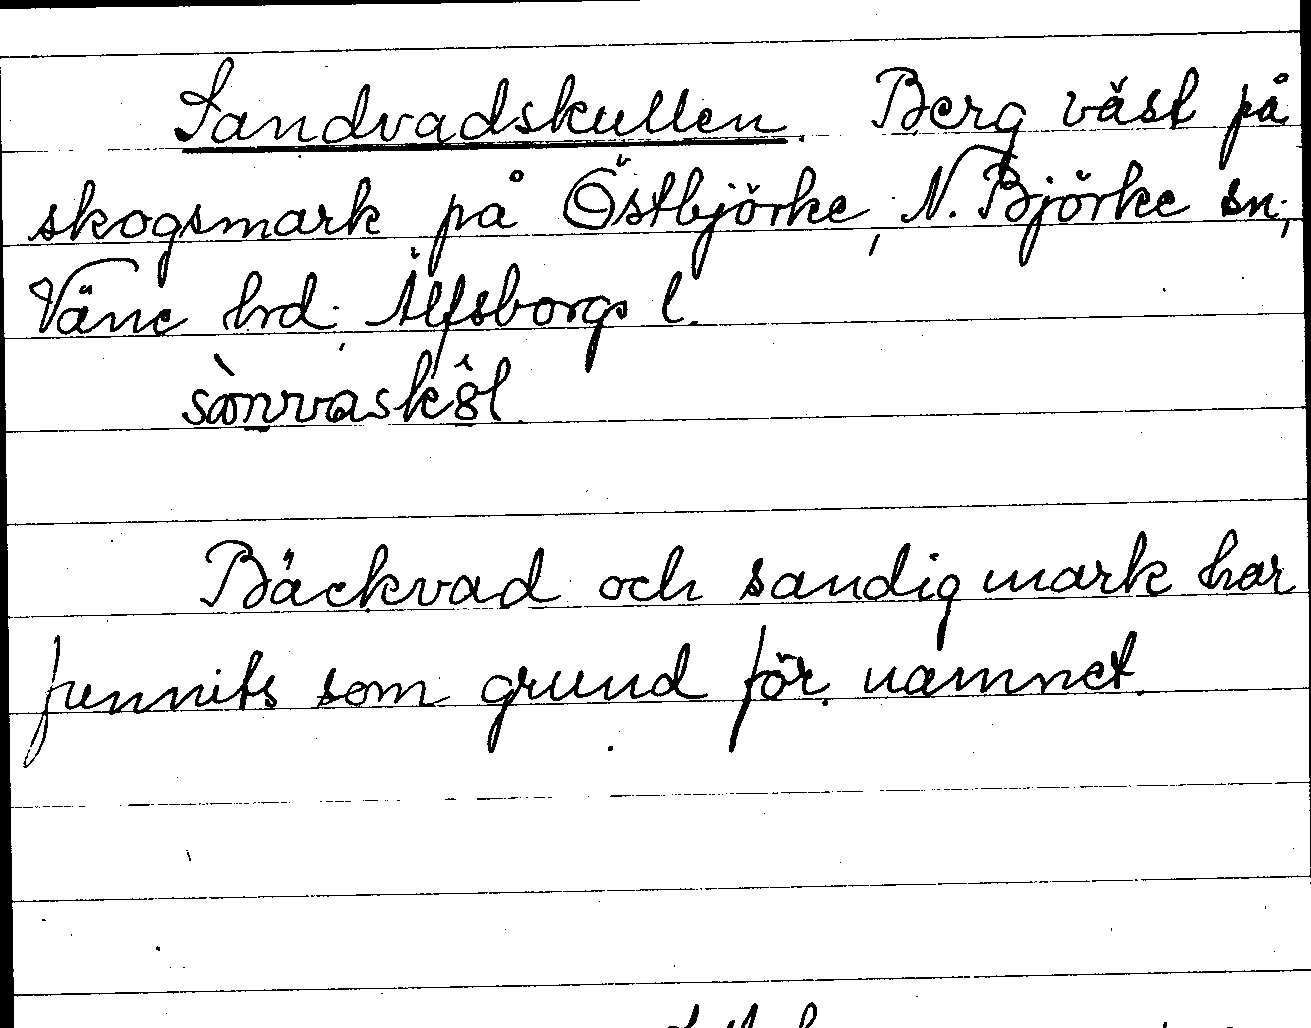 Sandvadskullen. Berg väst på
skogsmark på Östbjörke, N. Björke sn,
Väne hrd, Älfsborgs l.
Bäckvad och sandig mark har
funnits som grund för namnet.